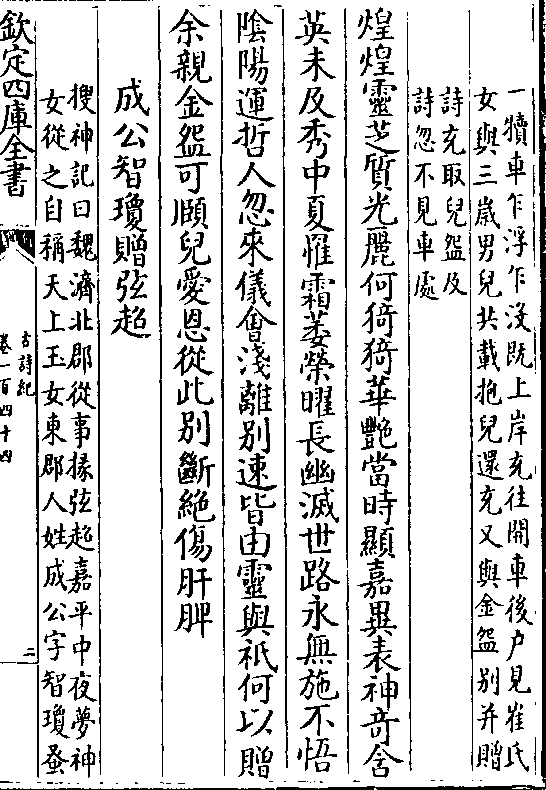 一犢車乍浮乍沒既上岸充往開車後户見崔氏
女與三嵗男兒共載抱兒還充又與金盌别并贈
詩充取兒盌及
詩忽不見車處
煌煌靈芝質光麗何猗猗華艷當時顯嘉異表神竒含
英未及秀中夏罹霜萎榮曜長幽滅世路永無施不悟
隂陽運哲人忽來儀會淺離别速皆由靈與祇何以贈
余親金盌可頤兒愛恩從此别斷絶傷肝脾
成公智瓊贈弦超
搜神記曰魏濟北郡從事掾弦超嘉平中夜夢神
女從之自稱天上玉女東郡人姓成公字智瓊蚤
欽定四庫全書
古詩紀
卷一百四十四
二